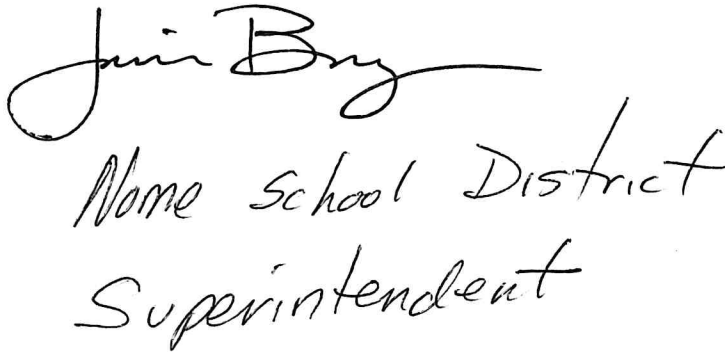 Nome School District
Superintendent